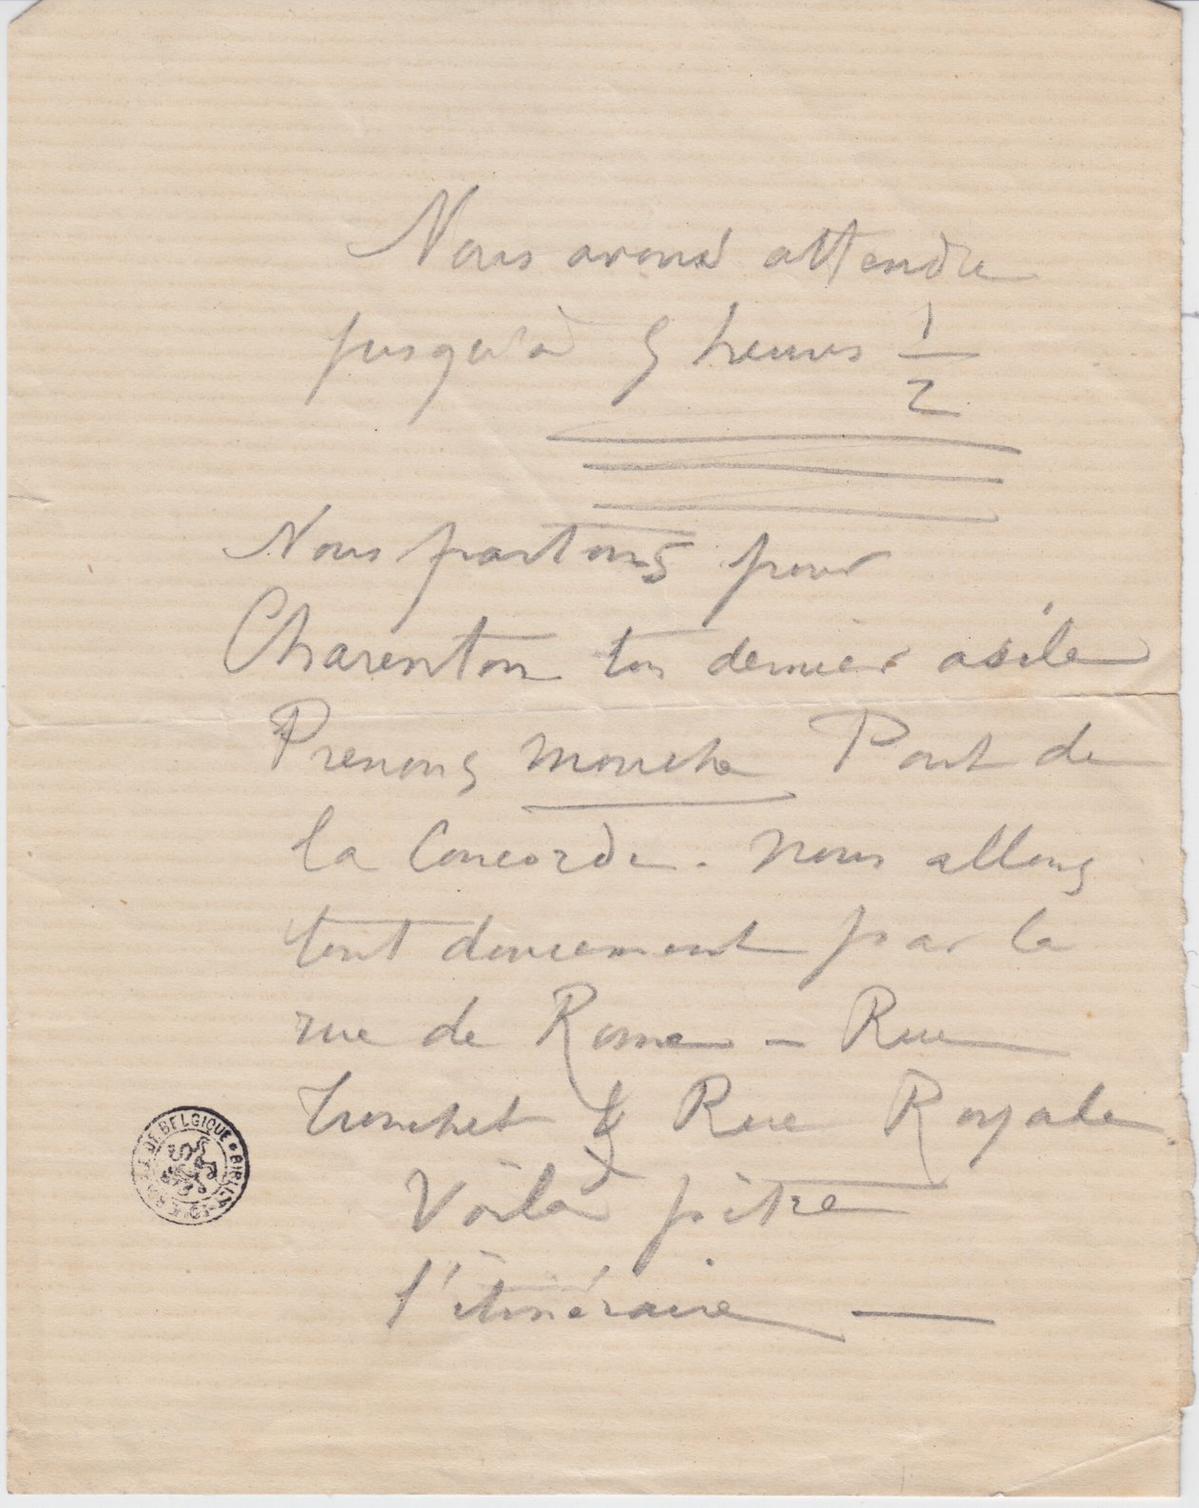 Nous avons attendu
jusqu'à 5 heures 1/2
Nous partons pour
Charenton ton dernier asile
Prenons mouche Pont de
la Concorde. Nous allons
tout doucement par la
rue de Rome – Rue
Tronchet & Rue Royale
Voilà pître
l'itinéraire —
ROYALE DE BELGIQUE * BIBLIOTHÈQUE